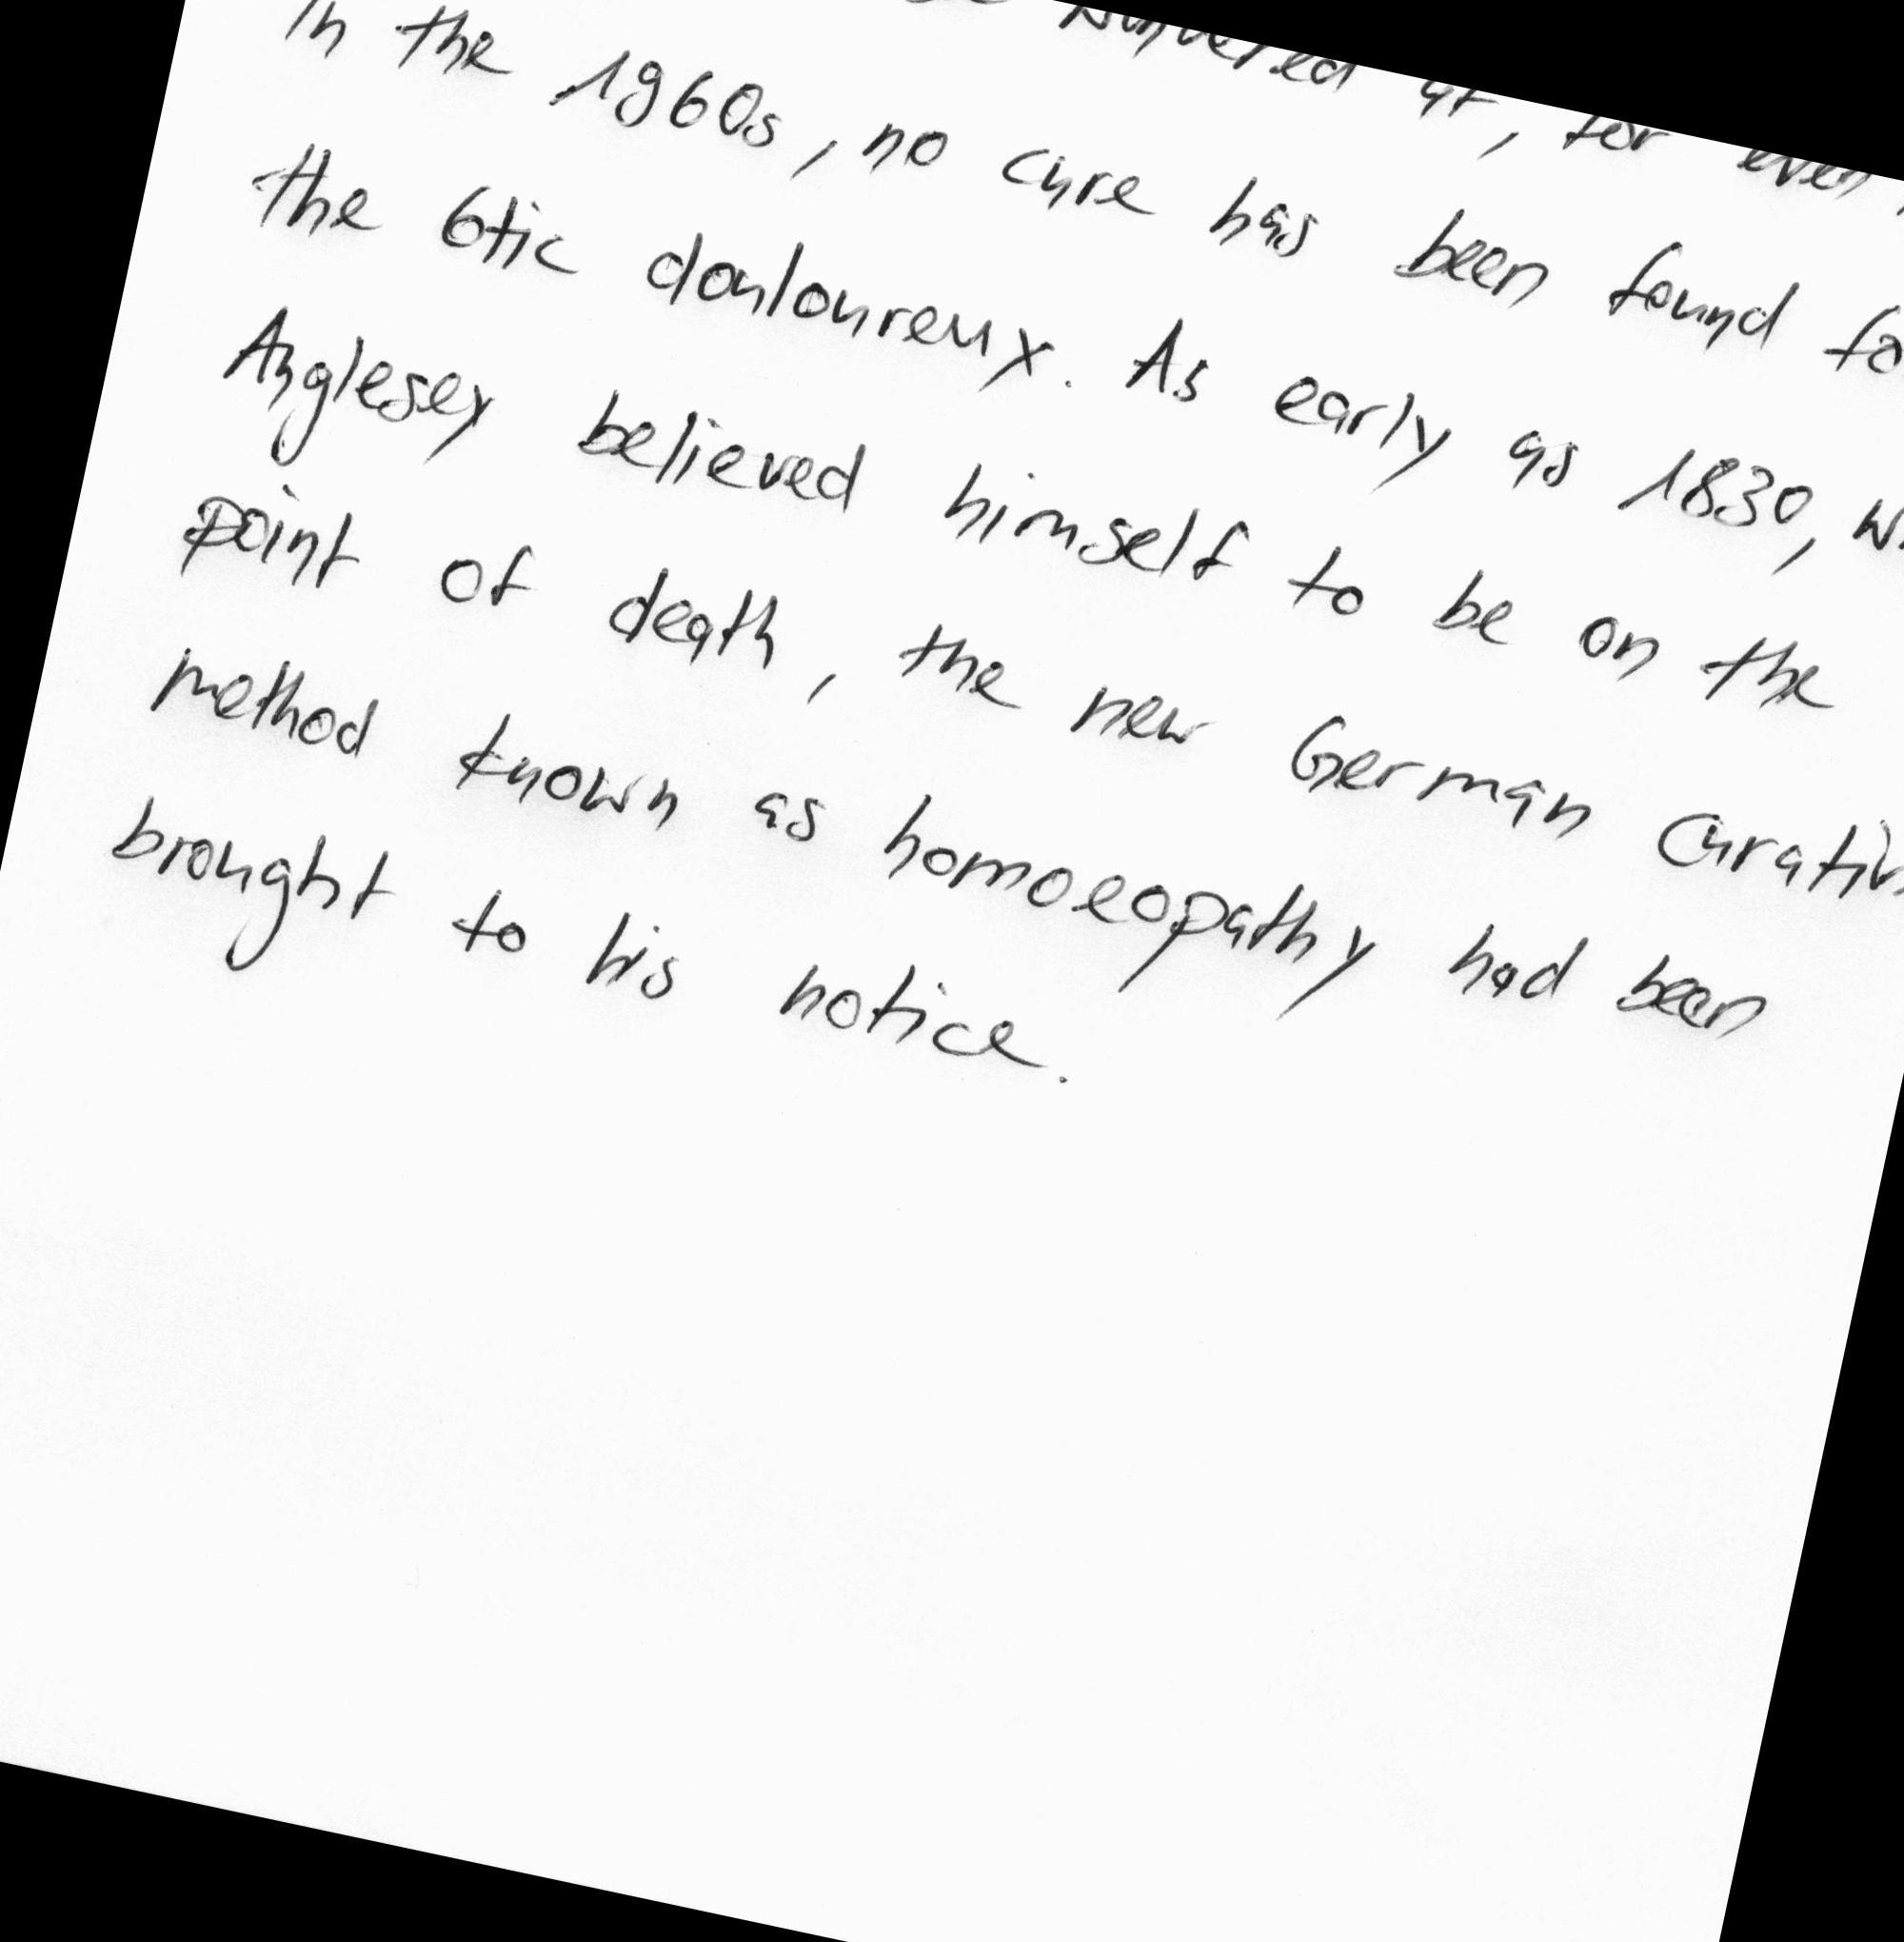 at, for even,
in the 1960s, no cure has been found fo
the 6tic douloureux. As early as 1830, w
Anglesey believed himself to be on the
point of death, the new German curativ
method known as homoeopathy had been
brought to his notice.